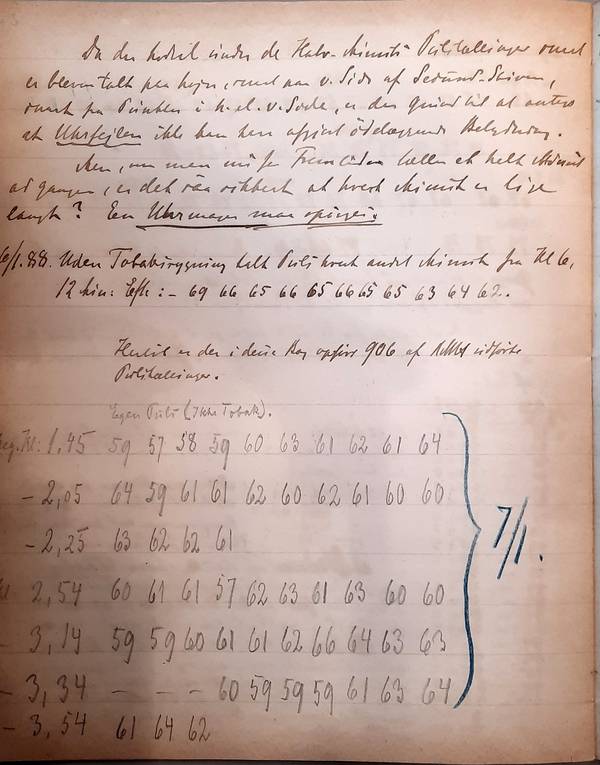 Da der hertil inden de Halv-Minuts Pulstællinger
er bleven talt paa højre, snart paa v. Side af Secund-Skiven,
snart fra Punkter i h. el. v. Side, er der grund til at antage
at Uhrfejlen ikke kan have afgjort ödelæggende Betydning.
Men, om man
ad gangen, er det saa sikkert at hvert Minut er lige
langt? En Uhrmager maa spörges.
6/1. 88. Uden Tobaksrygning talt Puls hvert andet Minut fra Kl 6,
12 Min: Eft: :- 69 66 65 66 65 66 65 65 63 64 62.
Hertil er der i denne Bog opført 906 af udförte
Pulstællinger.
Egen Puls (Ikke Tobak).
Beg. Kl: 1,45 59 57 58 59 60 63 61 62 61 64
- 2,05 64 59 61 61 62 60 62 61 60 60
- 2,25 63 62 62 61
Kl 2,54 60 61 61 57 62 63 61 63 60 60
- 3,14 59 59 60 61 61 62 66 64 63 63
- 3,34 - - - 60 59 59 59 61 63 64
- 3,54 61 64 62
7/1.